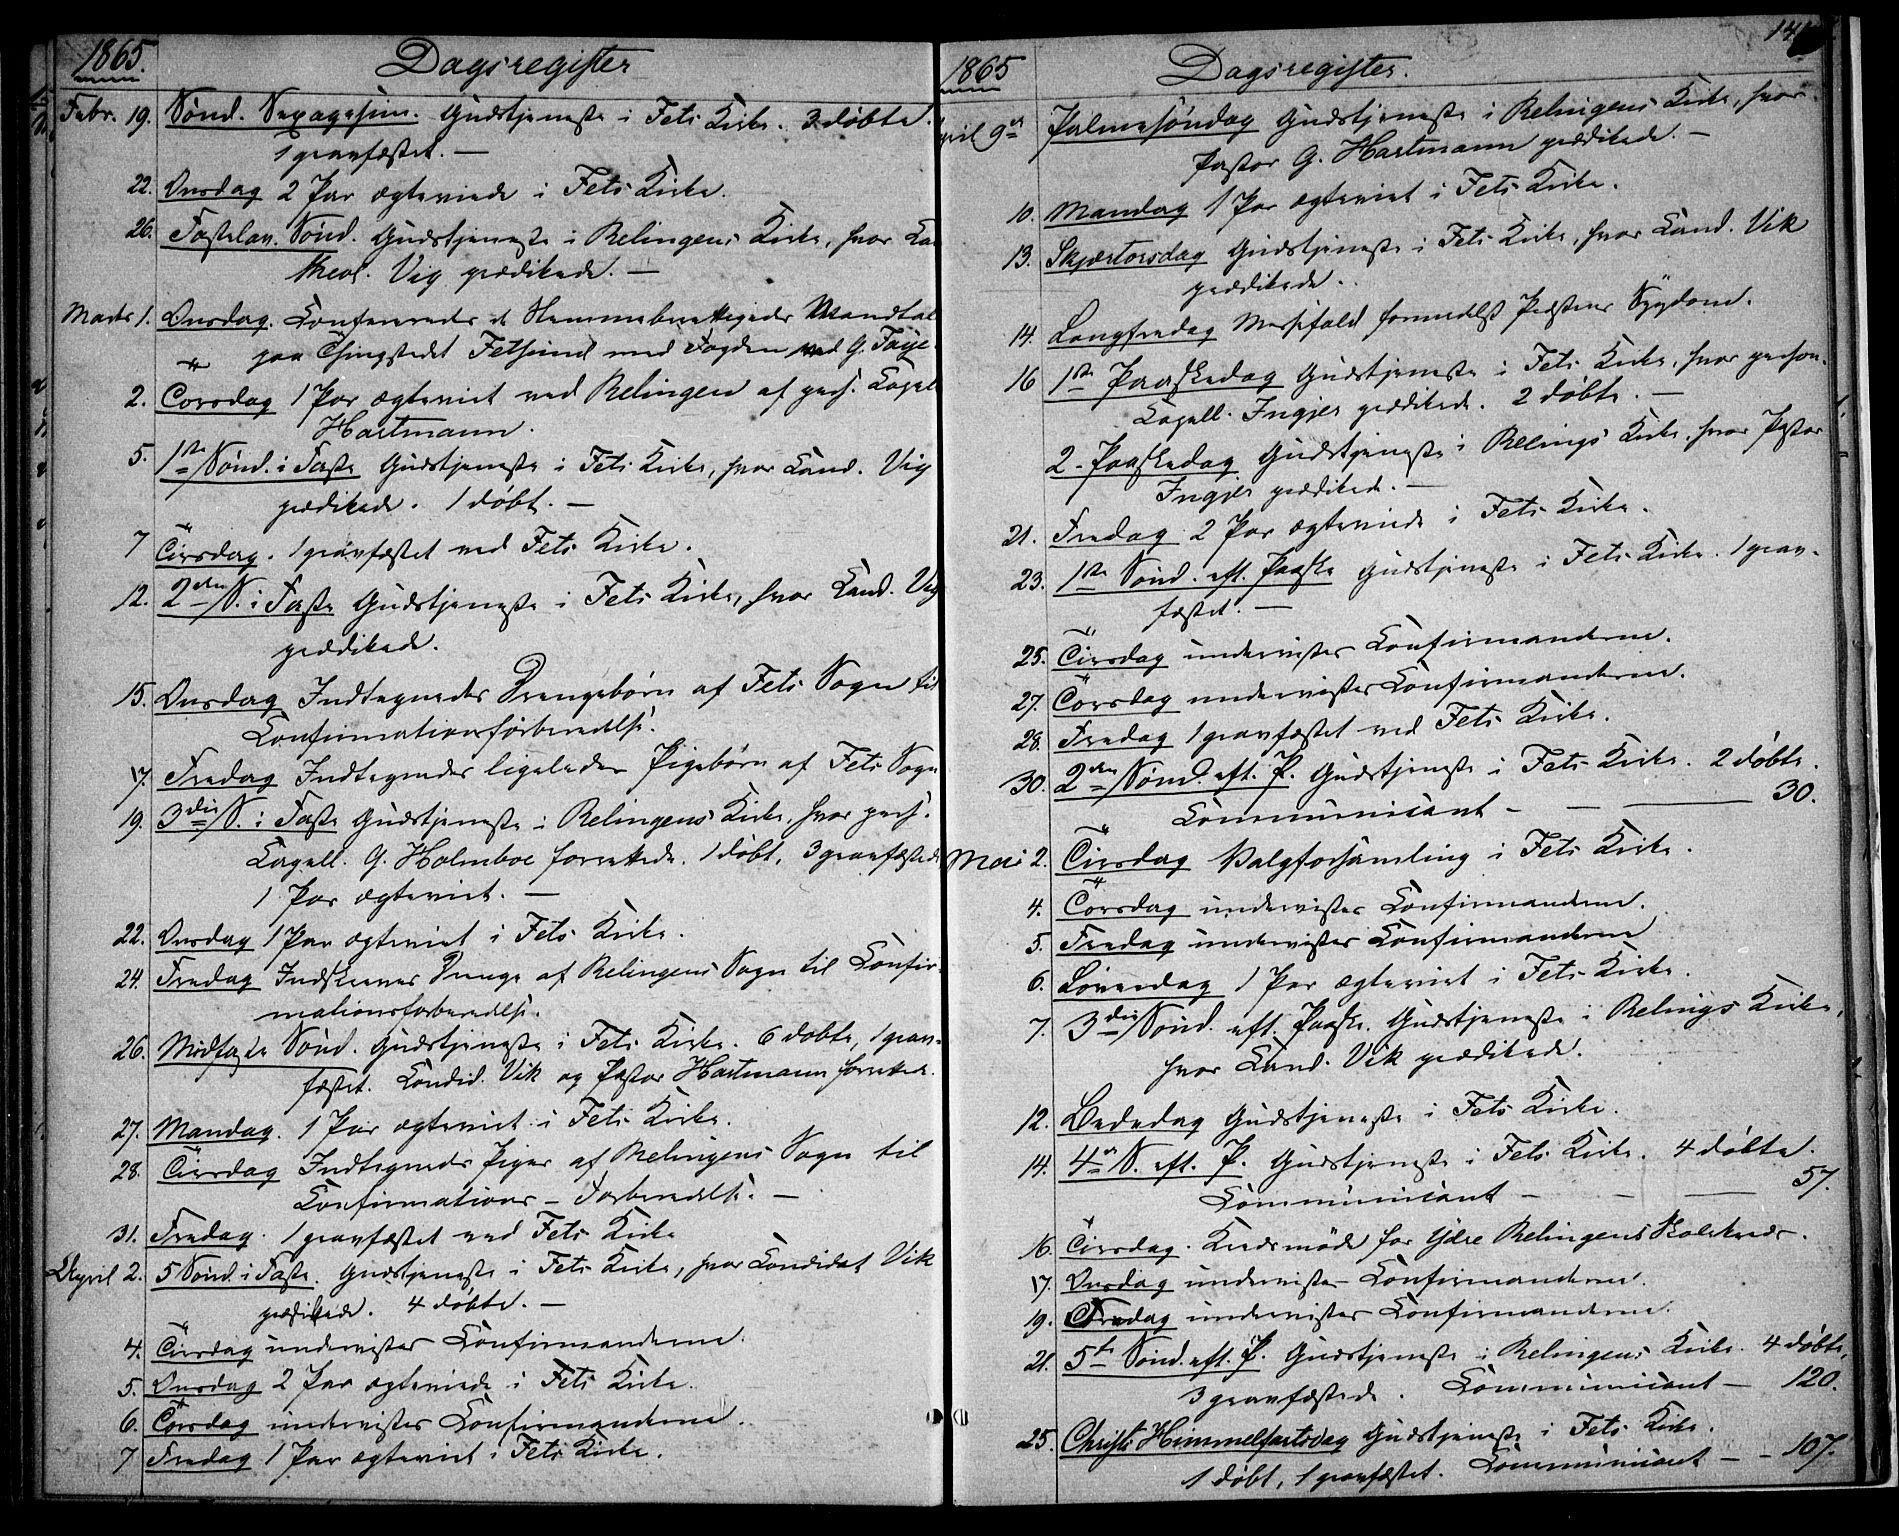 1865.
Dagsregister
Febr. 19. Sønd. Sexagesim. Gudstjeneste i Fets Kirke. 3 døbte.
1 gravfæstet. —
22. Onsdag 2 Par ægteviede i Fets Kirke.
26. Fastelav. Sønd. Gudstjeneste i Relingens Kirke, hvor
theol. Vig prædikede. —
Marts 1. Onsdag. Confereredes de Stemmeberettigedes Mandtal
paa Thingstedet Fetsund med Fogden ved G. Faye.
2. Torsdag 1 Par ægteviet ved Relingen af pers. Capell
Hartmann.
5. 1ste Sønd. i Faste Gudstjeneste i Fets Kirke, hvor Cand. Vig
prædikede. 1 døbt. —
7 Tirsdag. 1 gravfæstet ved Fets Kirke.
12. 2den S. i Faste Gudstjeneste i Fets Kirke, hvor Cand. Vig
prædikede.
15. Onsdag Indtegnedes Drengebørn af Fets Sogn til
Confirmationsforberedelse.
17. Fredag Indtegnedes ligeledes Pigebørn af Fets Sogn
19. 3die S. i Faste Gudstjeneste i Relingens Kirke, hvor pers.
Capell. G. Holmboe forrettede. 1 døbt, 3 gravfæstede
1 Par ægteviet. —
22. Onsdag 1 Par ægteviet i Fets Kirke.
24. Fredag Indskreves Drenge af Relingens Sogn til Confir-
mationsforberedelse.
26. Midfaste Sønd. Gudstjeneste i Fets Kirke. 6 døbte, 1 grav-
fæstet. Candid. Vik og Pastor Hartmann forrettede.
27. Mandag. 1 Par ægteviet i Fets Kirke.
28. Tirsdag Indtegnedes Piger af Relingens Sogn til
Confirmations-Forberedelse. —
31. Fredag. 1 gravfæstet ved Fets Kirke
April 2. 5 Sønd. i Faste. Gudstjeneste i Fets Kirke, hvor Candidat Vik
prædikede. 4 døbte. —
4. Tirsdag undervistes Confirmanderne.
5. Onsdag 2 Par ægteviede i Fets Kirke.
6. Torsdag undervistes Confirmanderne.
7 Fredag 1 Par ægteviet i Fets Kirke.
1865
Dagsregister.
April 9de Palmesøndag Gudstjeneste i Relingens Kirke, hvor
Pastor G. Hartmann prædikede. —
10. Mandag 1 Par ægteviet i Fets Kirke.
13. Skjærtorsdag Gudstjeneste i Fets Kirke, hvor Cand. Vik
prædikede.
14. Langfredag Messefald formedelst Præstens Sygdom.
16 1ste Paaskedag Gudstjeneste i Fets Kirke, hvor person.
Capell. Ingjer prædikede. 2 døbte. —
2. Paaskedag Gudstjeneste i Relings Kirke, hvor Pastor
Ingjer prædikede. —
21. Fredag 2 Par ægteviede i Fets Kirke.
23. 1ste Sønd. eft. Paaske Gudstjeneste i Fets Kirke. 1 grav-
fæstet. —
25. Tirsdag undervistes Confirmanderne.
27. Torsdag undervistes Confirmanderne.
28. Fredag 1 gravfæstet ved Fets Kirke.
30. 2den Sønd. eft. P. Gudstjeneste i Fets Kirke. 2 døbte.
Communicant — — — 30.
Mai 2. Tirsdag Valgforsamling i Fets Kirke.
4. Torsdag undervistes Confirmanderne.
5. Fredag undervistes Confirmanderne
6. Løverdag 1 Par ægteviet i Fets Kirke.
7. 3die Sønd. eft. Paaske. Gudstjeneste i Relings Kirke,
hvor Cand. Vik prædikede.
12. Bededag Gudstjeneste i Fets Kirke.
14. 4de S. eft. P. Gudstjeneste i Fets Kirke. 4 døbte.
Communicant — — — 57.
16. Tirsdag. Kredsmøde for Ydre Relingens Skolekreds.
17. Onsdag undervistes Confirmanderne.
19. Fredag undervistes Confirmanderne.
21. 5te Sønd. eft. P. Gudstjeneste i Relingens Kirke. 4 døbte,
3 gravfæstede. Communicant — 120.
25. Christi Himmelfartsdag Gudstjeneste i Fets Kirke.
1 døbt, 1 gravfæstet. Communicant — — 107.